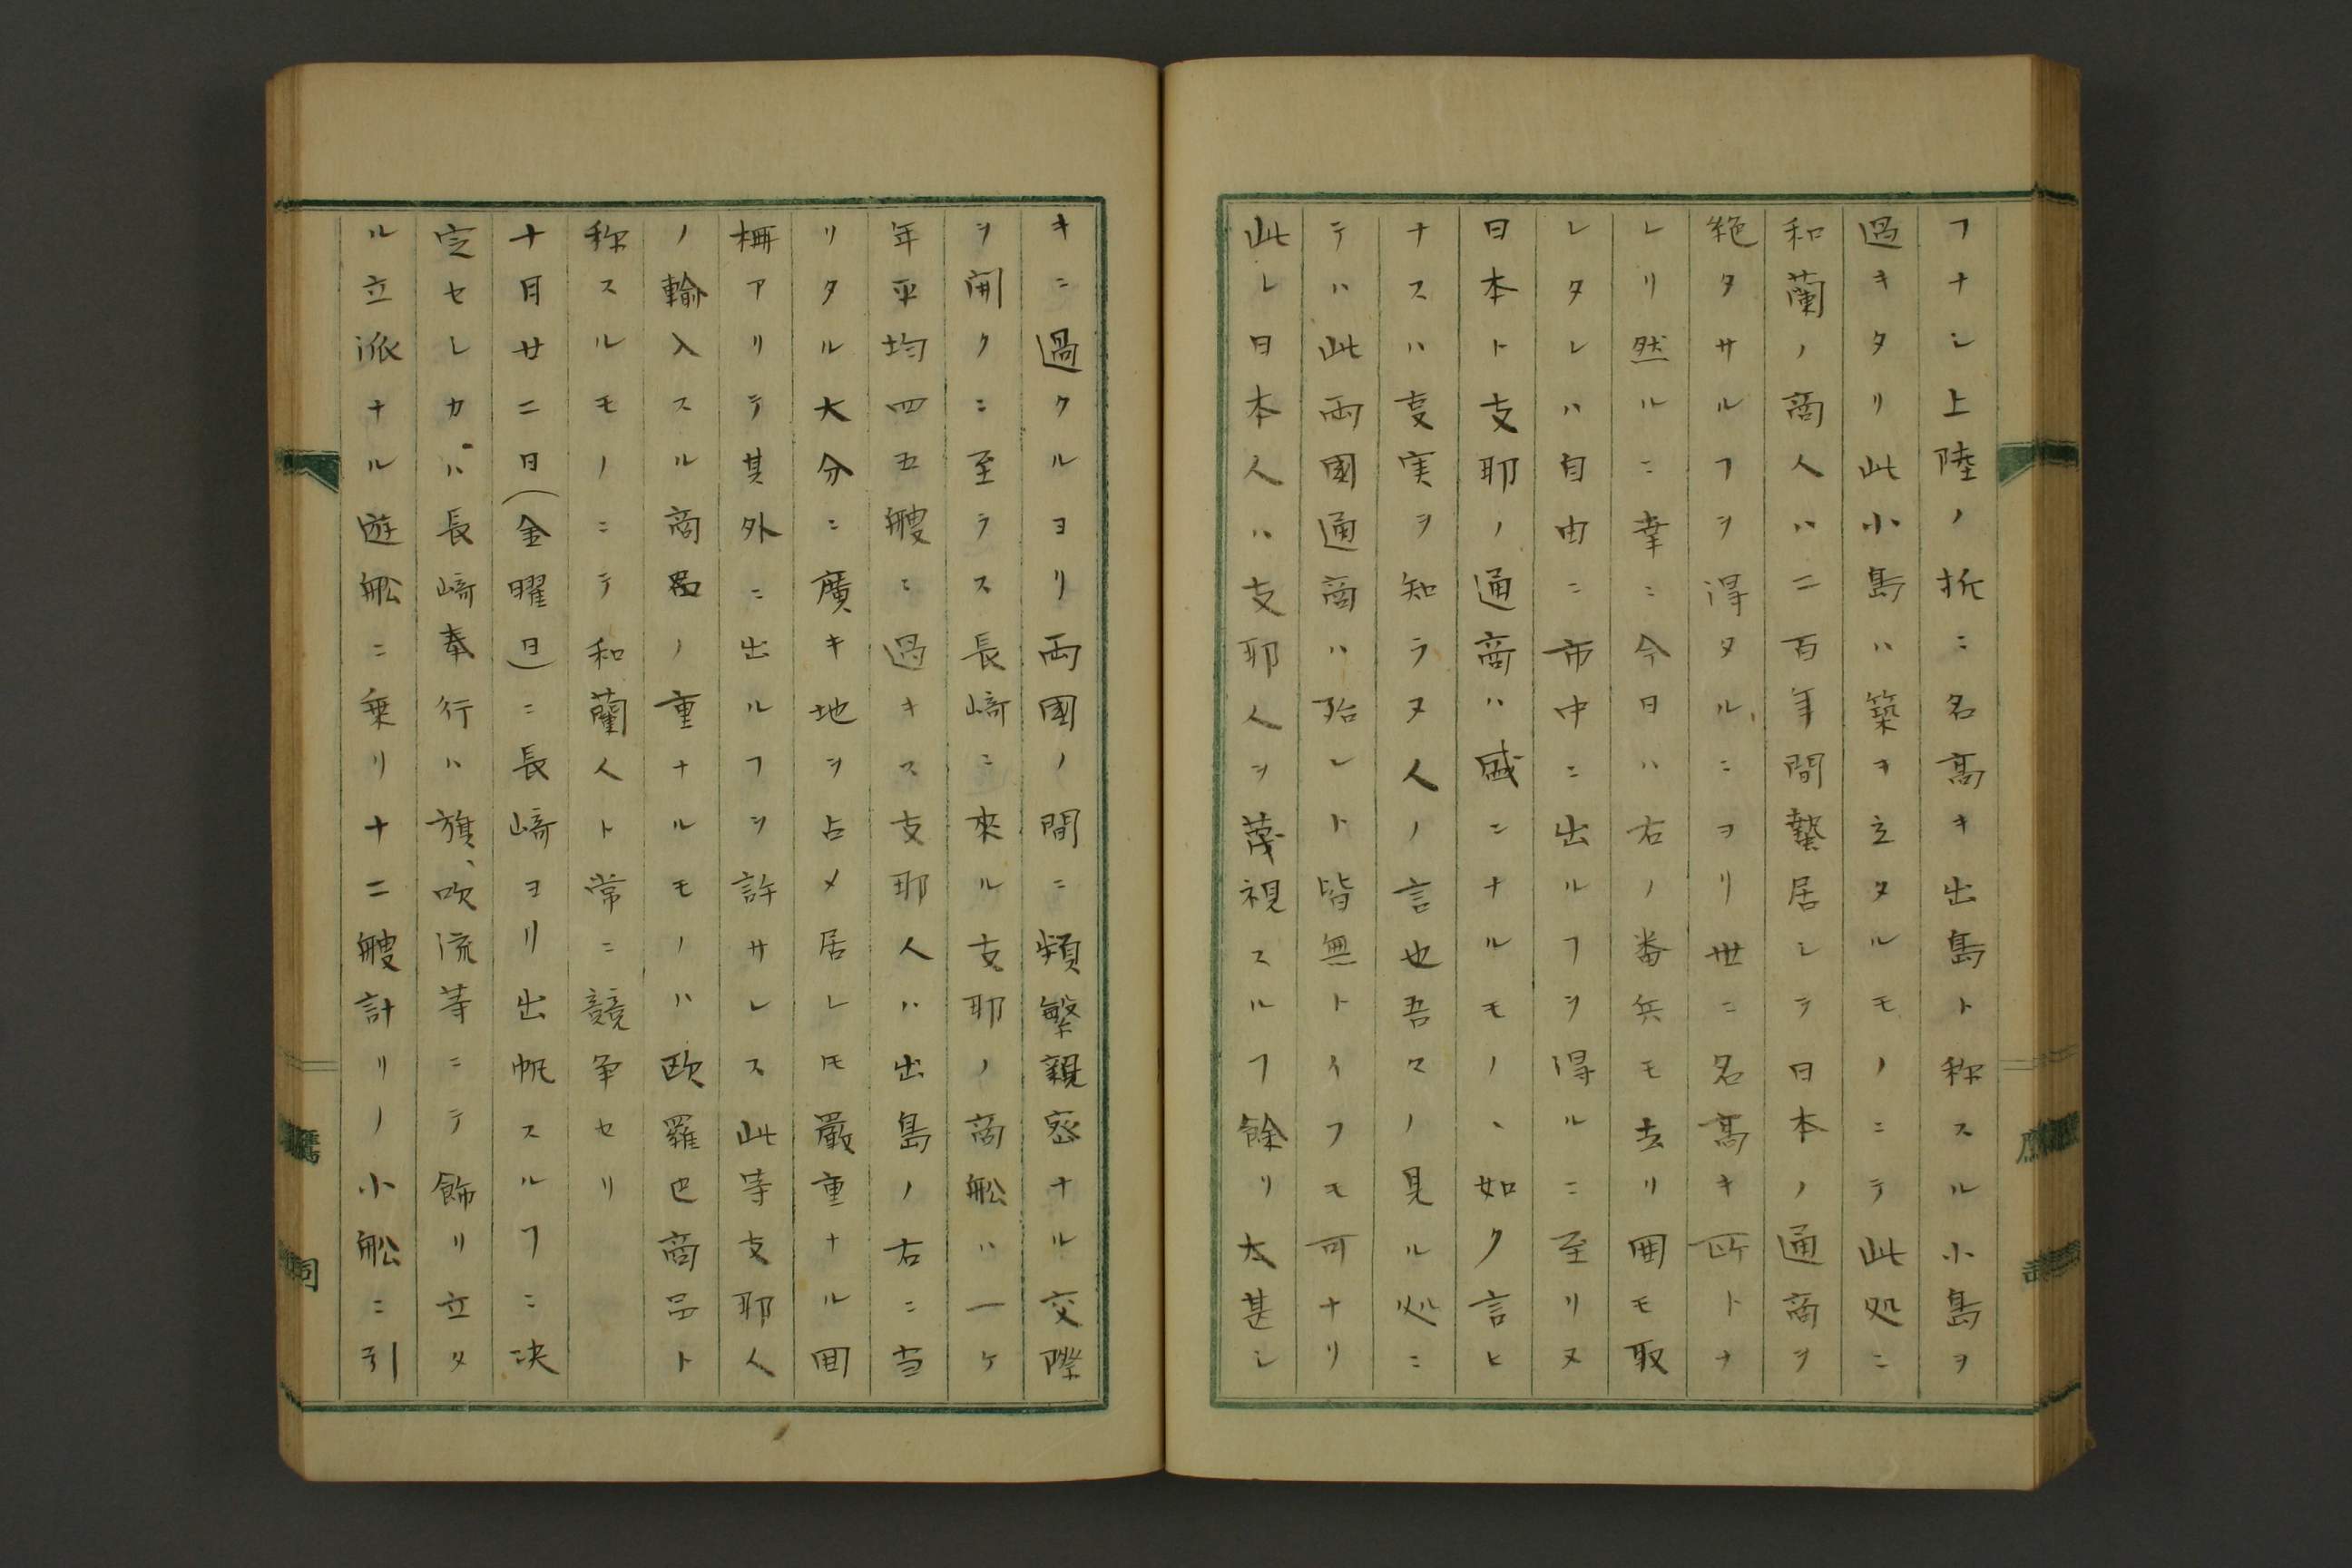 フナシ上陸ノ折ニ名高キ出島ト称スル小島ヲ
過キタリ此小島ハ築キ立タルモノニテ此処ニ
和蘭ノ商人ハ二百年間蟄居シテ日本ノ通商ヲ
絶タサルフヲ得タルニヨリ世ニ名高キ所トナ
レリ然ルニ幸ニ今日ハ右ノ番兵モ去リ囲モ取
レタレハ自由ニ市中ニ出ルフヲ得ルニ至リヌ
日本ト支耶ノ通商ハ盛ンナルモノヽ如ク言ヒ
ナスハ㕝実ヲ知ラヌ人ノ言也吾々ノ見ル処ニ
テハ此両國通商ハ殆ント皆無トイフモ可ナリ
此レ日本人ハ支耶人ヲ蔑視スルフ餘リ太甚シ
キニ過クルヨリ両國ノ間ニ頻繁親密ナル交際
ヲ開クニ至ラス長﨑ニ來ル支耶ノ商舩ハ一ケ
年平均四五艘ニ過キス支耶人ハ出島ノ右ニ当
リタル大分ニ廣キ地ヲ占メ居レモ嚴重ナル囲
柵アリテ其外ニ出ルフヲ許サレス此等支耶人
ノ輸入スル商品ノ重ナルモノハ欧羅巴商品ト
称スルモノニテ和蘭人ト常ニ競争セリ
十月廿二日(金曜日)ニ長﨑ヨリ出帆スルフニ决
定セシカバ長﨑奉行ハ旗、吹流等ニテ飾リ立タ
ル立派ナル遊舩ニ乗リ十二艘計リノ小舩ニ引